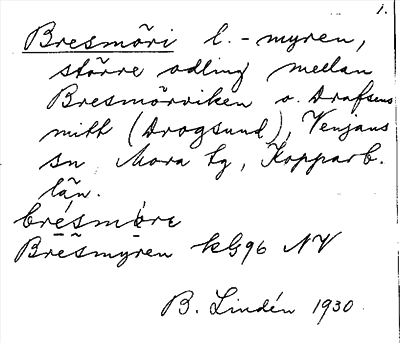 1.
Bresmöri l. - myren,
större odling mellan
Bresmörviken o. Drafsens
mitt (Drogsund), Venjans
sn Mora tg, Kopparb.
län.
brésmöre
Bresmyren kG96 NV
B. Lindén 1930